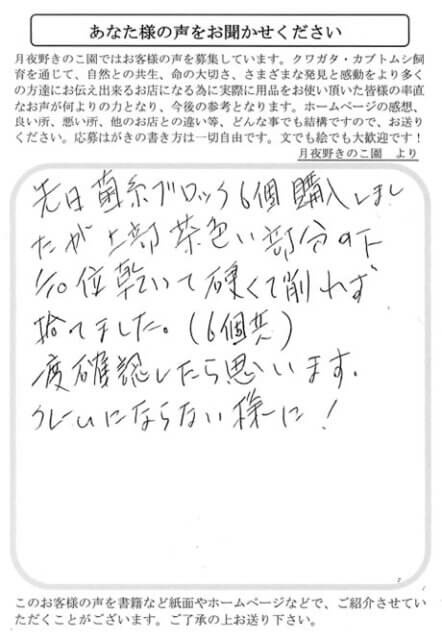 あなた様の声をお聞かせください
月夜野きのこ園ではお客様の声を募集しています。クワガタ・カブトムシ飼
育を通じて、自然との共生、命の大切さ、さまざまな発見と感動をより多く
の方達にお伝え出来るお店になる為に実際に用品をお使い頂いた皆様の率直
なお声が何よりの力となり、今後の参考となります。ホームページの感想、
良い所、悪い所、他のお店との違い等、どんな事でも結構ですので、お送り
ください。応募はがきの書き方は一切自由です。文でも絵でも大歓迎です！
月夜野きのこ園 より
先日菌糸ブロック6個購入しまし
たが上部茶色い部分の下
1/10位乾いて硬くて削れず
捨てました。（6個共）
度確認したら思います。
クレームにならない様に！
このお客様の声を書籍など紙面やホームページなどで、ご紹介させてい
ただくことがございます。ご了承の上お送り下さい。